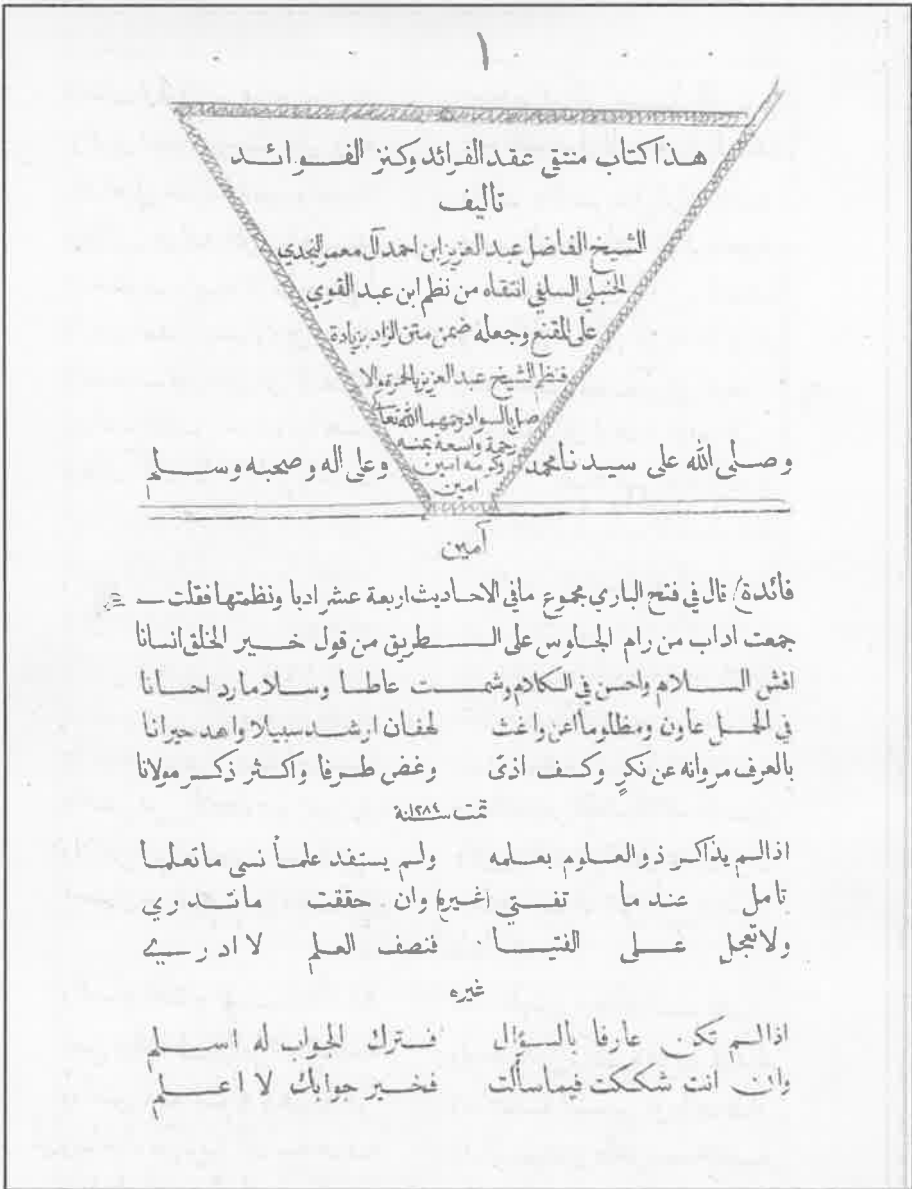 ١
هذا كتاب منتقى عقد الفرائد وكنز الفوائد
تاليف
الشيخ الفاضل عبد العزيز ابن احمد آل معمر النجدي
الحنبلي السلفي انتقاه من نظم ابن عبد القوي
على المقنع وجعله ضمن متن الزاد بزيادة
فنظم الشيخ عبد العزيز بالحمرة والا
صل بالسواد رحمهما الله تعالى
رحمة واسعة بمنه
وكرمه امين
امين
وصلى الله على سيدنا محمد وعلى اله وصحبه وسلم
آمين
فائدة) قال في فتح الباري مجموع ما في الاحاديث اربعة عشر ادبا ونظمتها فقلت
جمعت اداب من رام الجلوس على الطريق من قول خير الخلق انسانا
افش السلام واحسن في الكلام وشمت عاطسا وسلاما رد احسانا
في الحمل عاون ومظلوما اعن واغث لهفان ارشد سبيلا واهد حيرانا
بالعرف مر وانه عن نكرٍ وكف اذى وغض طرفا واكثر ذكر مولانا
تمت سنة ١٢٨٤
اذا لم يذاكر ذو العلوم بعلمه ولم يستفد علماً نسي ما تعلما
تامل عند ما تفتي (غيره) وان حققت ما تدري
ولا تعجل على الفتيا فنصف العلم لا ادري
غيره
اذا لم تكن عارفا بالسؤال فترك الجواب له اسلم
وان انت شككت فيما سألت فخير جوابك لا اعلم